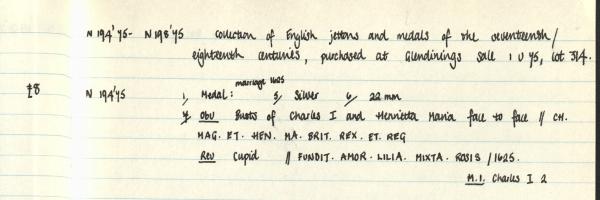 N 194'45- N 198'45 collection of English jettons and medals of the seventeenth/
eighteenth centuries, purchased at Glendinings sale 1 V 45, lot 314.
marriage 1625
£8 N 194'45 1, Medal: 5, Silver 6, 22 mm
Obv Busts of Charles I and Henrietta Maria face to face // CH.
MAG. ET. HEN. MA. BRIT. REX. ET. REG
Rev Cupid // FUNDIT. AMOR. LILIA. MIXTA. ROSIS / 1625.
M.I. Charles I 2